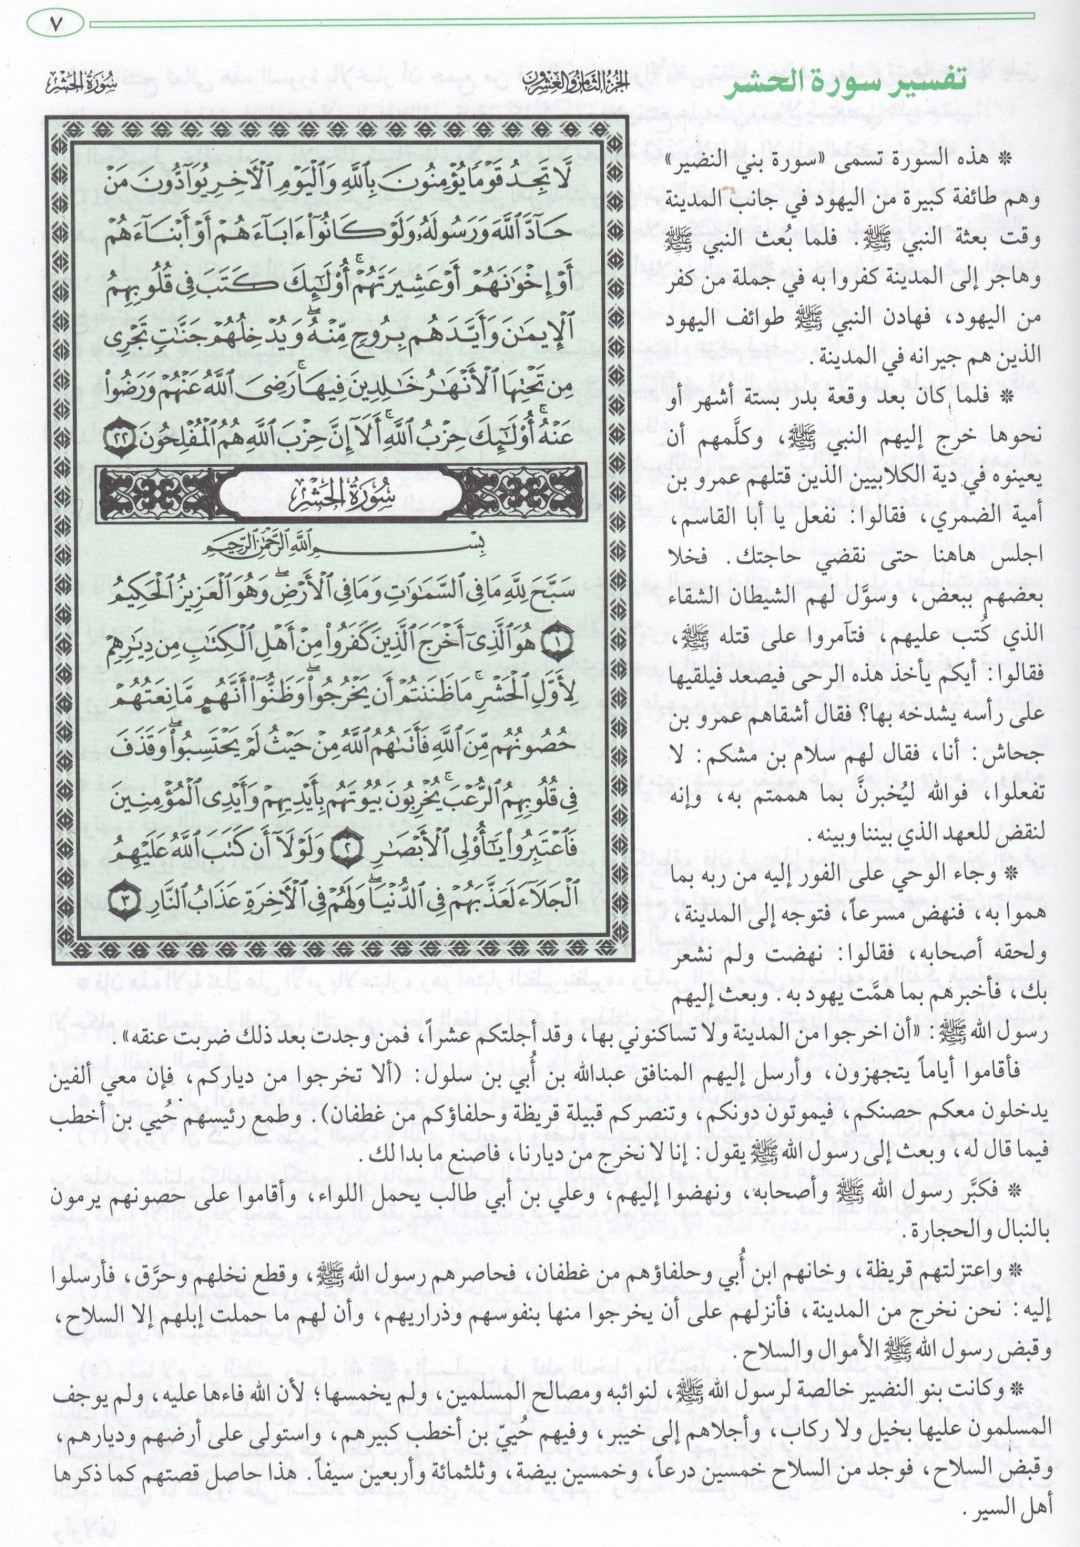 ٧
تفسير سورة الحشر
الجزء الثامن والعشرون
سورة الحشر
* هذه السورة تسمى «سورة بني النضير»
وهم طائفة كبيرة من اليهود في جانب المدينة
وقت بعثة النبي ﷺ. فلما بُعث النبي ﷺ
وهاجر إلى المدينة كفروا به في جملة من كفر
من اليهود، فهادن النبي ﷺ طوائف اليهود
الذين هم جيرانه في المدينة.
* فلما كان بعد وقعة بدر بستة أشهر أو
نحوها خرج إليهم النبي ﷺ، وكلَّمهم أن
يعينوه في دية الكلابيين الذين قتلهم عمرو بن
أمية الضمري، فقالوا: نفعل يا أبا القاسم،
اجلس هاهنا حتى نقضي حاجتك. فخلا
بعضهم ببعض، وسوَّل لهم الشيطان الشقاء
الذي كُتب عليهم، فتآمروا على قتله ﷺ،
فقالوا: أيكم يأخذ هذه الرحى فيصعد فيلقيها
على رأسه يشدخه بها؟ فقال أشقاهم عمرو بن
جحاش: أنا، فقال لهم سلام بن مشكم: لا
تفعلوا، فوالله ليُخبرنَّ بما هممتم به، وإنه
لنقض للعهد الذي بيننا وبينه.
* وجاء الوحي على الفور إليه من ربه بما
هموا به، فنهض مسرعاً، فتوجه إلى المدينة،
ولحقه أصحابه، فقالوا: نهضت ولم نشعر
بك، فأخبرهم بما همَّت يهود به. وبعث إليهم
لَّا تَجِدُ قَوْمًا يُؤْمِنُونَ بِٱللَّهِ وَٱلْيَوْمِ ٱلْأَخِرِ يُوَآدُّونَ مَنْ
حَآدَّ ٱللَّهَ وَرَسُولَهُۥ وَلَوْ كَانُوٓا۟ ءَابَآءَهُمْ أَوْ أَبْنَآءَهُمْ
أَوْ إِخْوَٰنَهُمْ أَوْ عَشِيرَتَهُمْ ۚ أُو۟لَٰٓئِكَ كَتَبَ فِى قُلُوبِهِمُ
ٱلْإِيمَٰنَ وَأَيَّدَهُم بِرُوحٍ مِّنْهُ ۖ وَيُدْخِلُهُمْ جَنَّٰتٍ تَجْرِى
مِن تَحْتِهَا ٱلْأَنْهَٰرُ خَٰلِدِينَ فِيهَا ۚ رَضِىَ ٱللَّهُ عَنْهُمْ وَرَضُوا۟
عَنْهُ ۚ أُو۟لَٰٓئِكَ حِزْبُ ٱللَّهِ ۚ أَلَآ إِنَّ حِزْبَ ٱللَّهِ هُمُ ٱلْمُفْلِحُونَ ٢٢
سُورَةُ الحَشْرِ
بِسْمِ ٱللَّهِ ٱلرَّحْمَٰنِ ٱلرَّحِيمِ
سَبَّحَ لِلَّهِ مَا فِى ٱلسَّمَٰوَٰتِ وَمَا فِى ٱلْأَرْضِ ۖ وَهُوَ ٱلْعَزِيزُ ٱلْحَكِيمُ
١ هُوَ ٱلَّذِىٓ أَخْرَجَ ٱلَّذِينَ كَفَرُوا۟ مِنْ أَهْلِ ٱلْكِتَٰبِ مِن دِيَٰرِهِمْ
لِأَوَّلِ ٱلْحَشْرِ ۚ مَا ظَنَنتُمْ أَن يَخْرُجُوا۟ ۖ وَظَنُّوٓا۟ أَنَّهُم مَّانِعَتُهُمْ
حُصُونُهُم مِّنَ ٱللَّهِ فَأَتَىٰهُمُ ٱللَّهُ مِنْ حَيْثُ لَمْ يَحْتَسِبُوا۟ ۖ وَقَذَفَ
فِى قُلُوبِهِمُ ٱلرُّعْبَ ۚ يُخْرِبُونَ بُيُوتَهُم بِأَيْدِيهِمْ وَأَيْدِى ٱلْمُؤْمِنِينَ
فَٱعْتَبِرُوا۟ يَٰٓأُو۟لِى ٱلْأَبْصَٰرِ ٢ وَلَوْلَآ أَن كَتَبَ ٱللَّهُ عَلَيْهِمُ
ٱلْجَلَآءَ لَعَذَّبَهُمْ فِى ٱلدُّنْيَا ۖ وَلَهُمْ فِى ٱلْأَخِرَةِ عَذَابُ ٱلنَّارِ ٣
رسول الله ﷺ: «أن اخرجوا من المدينة ولا تساكنوني بها، وقد أجلتكم عشراً، فمن وجدت بعد ذلك ضربت عنقه».
فأقاموا أياماً يتجهزون، وأرسل إليهم المنافق عبدالله بن أُبي بن سلول: (ألا تخرجوا من دياركم، فإن معي ألفين
يدخلون معكم حصنكم، فيموتون دونكم، وتنصركم قبيلة قريظة وحلفاؤكم من غطفان). وطمع رئيسهم حُيي بن أخطب
فيما قال له، وبعث إلى رسول الله ﷺ يقول: إنا لا نخرج من ديارنا، فاصنع ما بدا لك.
* فكبَّر رسول الله ﷺ وأصحابه، ونهضوا إليهم، وعلي بن أبي طالب يحمل اللواء، وأقاموا على حصونهم يرمون
بالنبال والحجارة.
* واعتزلتهم قريظة، وخانهم ابن أُبي وحلفاؤهم من غطفان، فحاصرهم رسول الله ﷺ، وقطع نخلهم وحرَّق، فأرسلوا
إليه: نحن نخرج من المدينة، فأنزلهم على أن يخرجوا منها بنفوسهم وذراريهم، وأن لهم ما حملت إبلهم إلا السلاح،
وقبض رسول الله ﷺ الأموال والسلاح.
* وكانت بنو النضير خالصة لرسول الله ﷺ، لنوائبه ومصالح المسلمين، ولم يخمسها؛ لأن الله فاءها عليه، ولم يوجف
المسلمون عليها بخيل ولا ركاب، وأجلاهم إلى خيبر، وفيهم حُييّ بن أخطب كبيرهم، واستولى على أرضهم وديارهم،
وقبض السلاح، فوجد من السلاح خمسين درعاً، وخمسين بيضة، وثلثمائة وأربعين سيفاً. هذا حاصل قصتهم كما ذكرها
أهل السير.